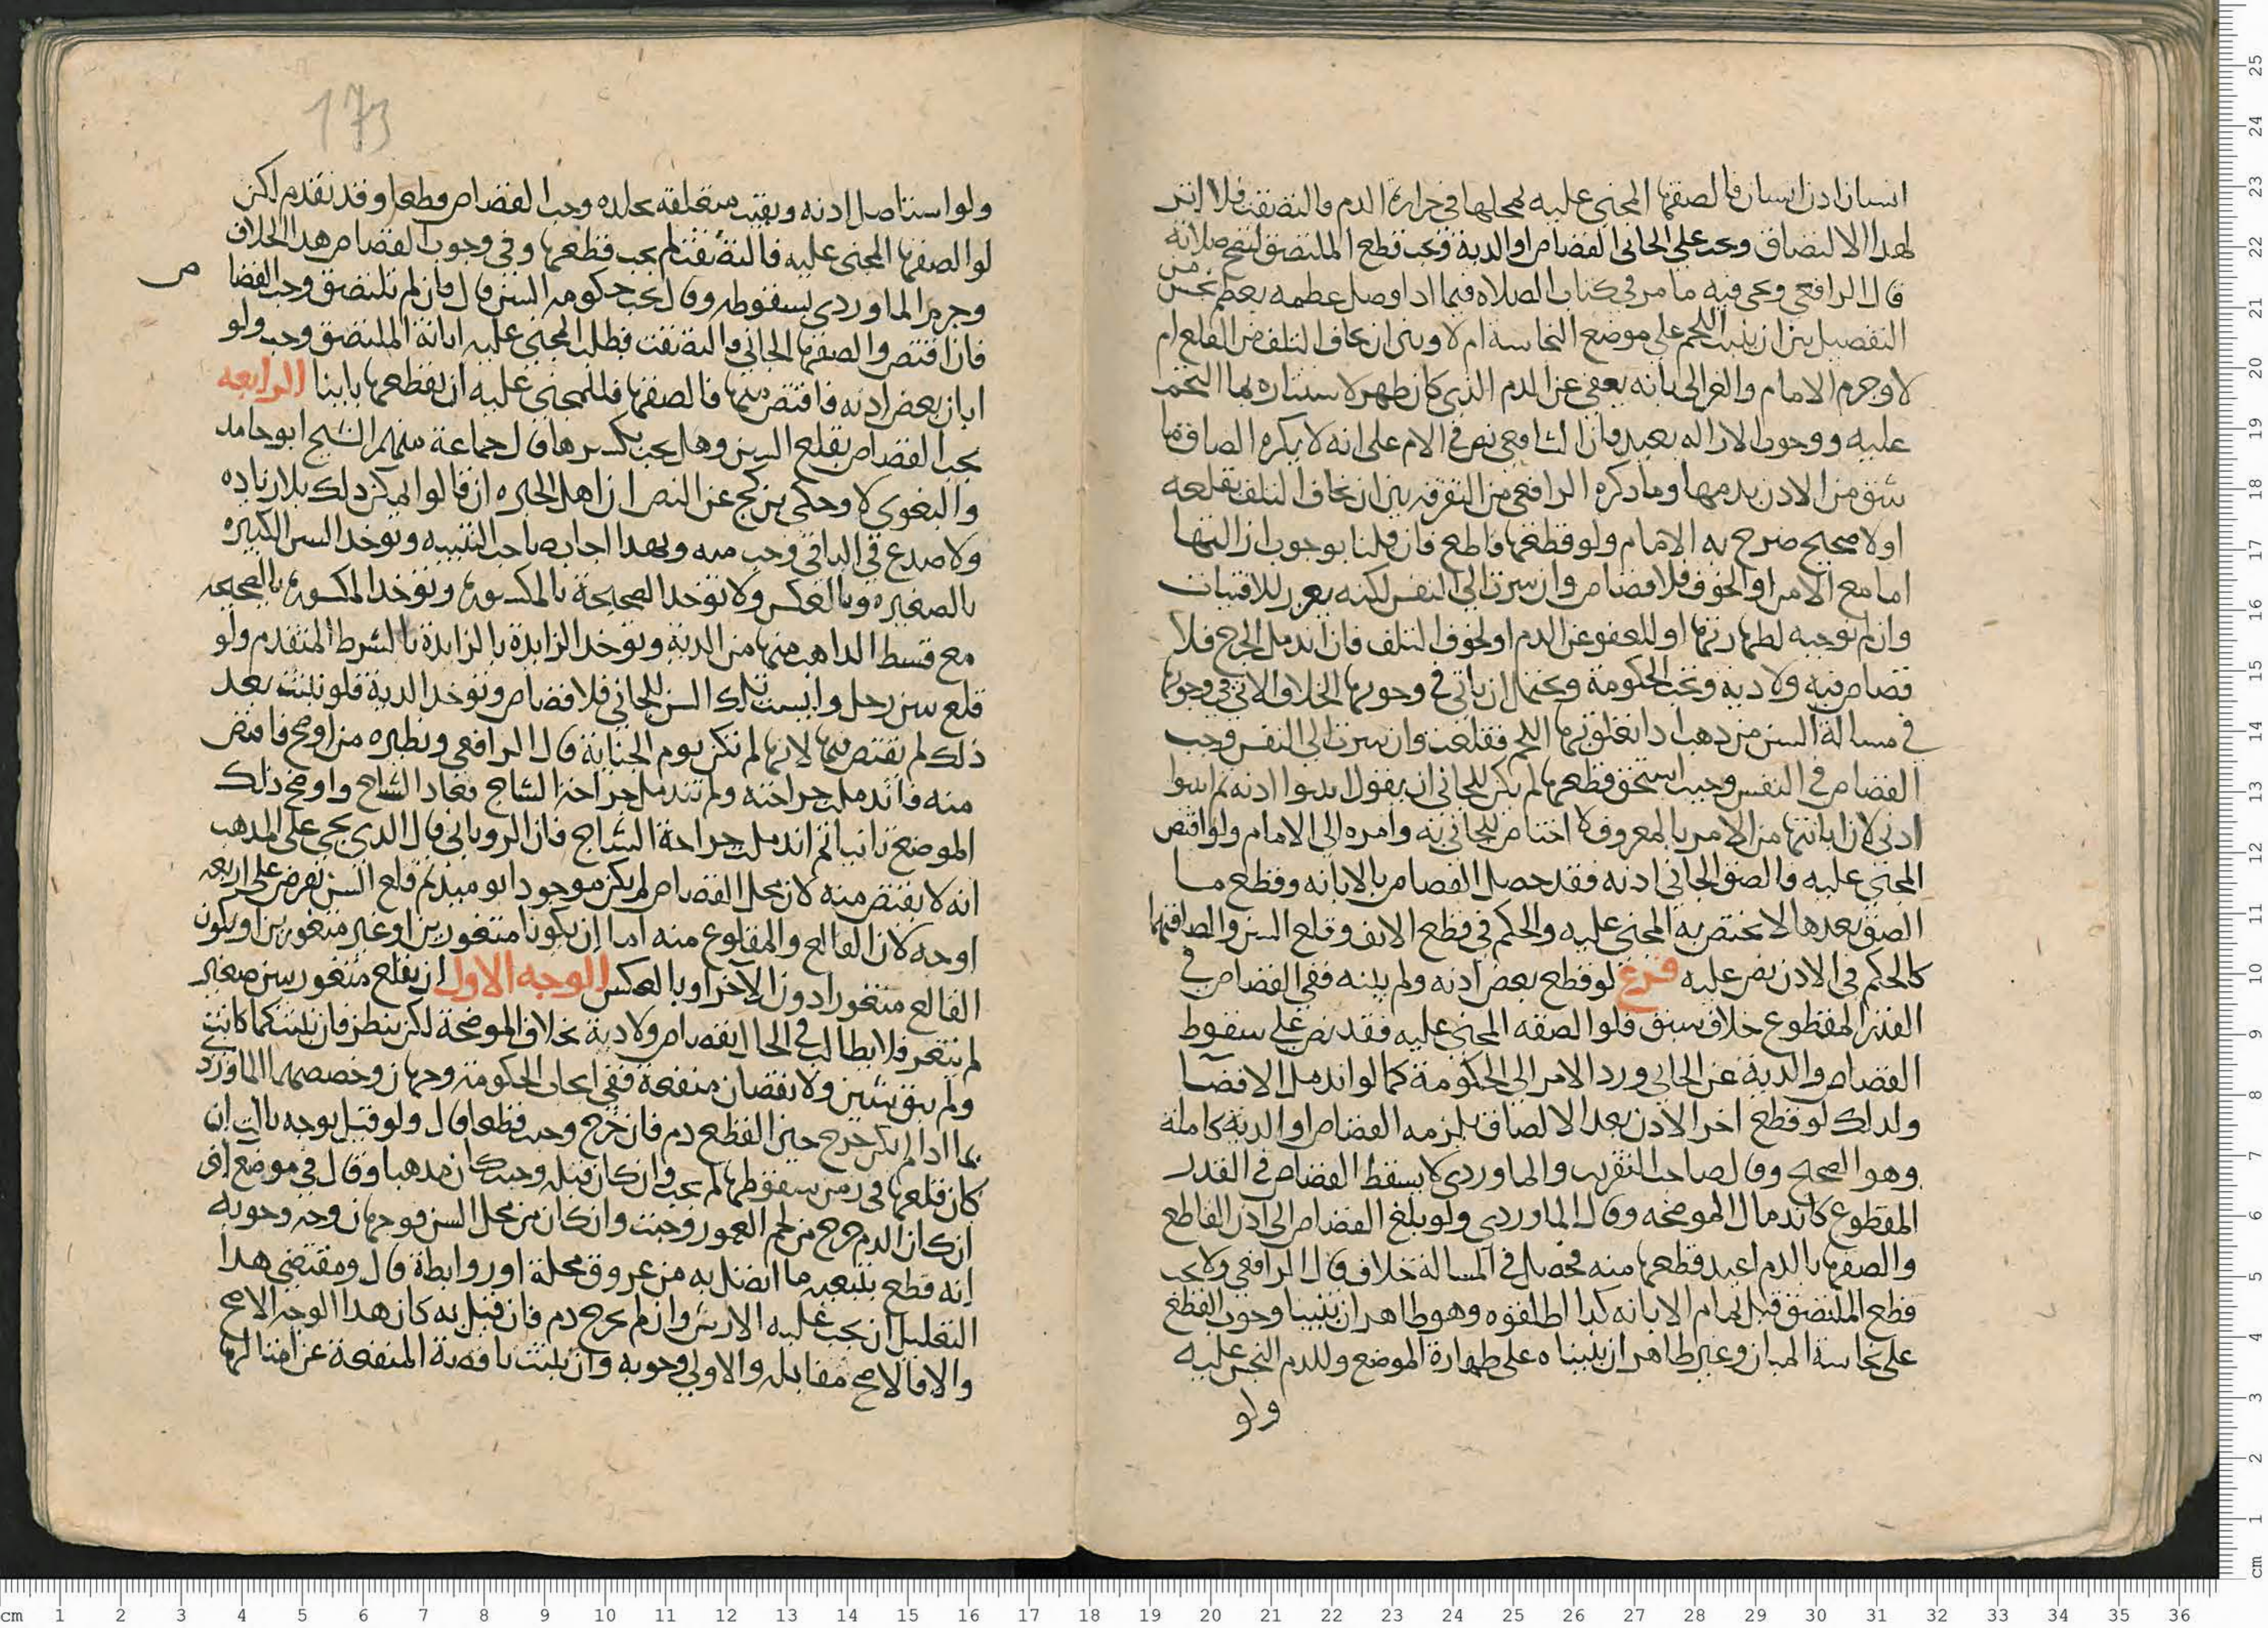 انسان اذن انسان فالصقها المجني عليه لمحلها في حرارة الدم فالتصقت فلا اثر
لهذا الالتصاق ويجب على الجاني القصاص او الدية ويجب قطع الملتصق لتصح صلاته
قال الرافعي ويجي فيه ما مر في كتاب الصلاه فيما اذا وصل عظمه بعظم نجس من
التفصيل بين ان ينبت اللحم على موضع النجاسه ام لا وبين ان يخاف التلف من القلع ام
لا وجزم الامام والغزالي بانه يعفى عن الدم الذي كان ظهر لاستتاره بما التحم
عليه ووجوب الازاله بعيد فان الشافعي نص في الام على انه لا يكره الصاق ما
شق من الاذن بدمها وما ذكره الرافعي من التفرقه بين ان يخاف التلف بقلعه
اولا صحيح صرح به الامام ولو قطعها قاطع فان قلنا بوجوب ازالتها
اما مع الامن او الخوف فلا قصاص وان سرت الى النفس لكنه يعزر للافتيات
وان لم نوجبه لطهارتها او للعفو عن الدم او لخوف التلف فان اندمل الجرح فلا
قصاص فيه ولا دية وتجب الحكومة ويحتمل ان ياتي في وجوبها الخلاف الاتي في وجوبها
في مسالة السن من ذهب اذا تعلق بها اللحم فقلعت وان سرت الى النفس وجب
القصاص في النفس وحيث استحق قطعها لم يكن للجاني ان يقول ابينوا اذنه ثم ابينوا
اذني لان ابانتها من الامر بالمعروف لا اختصاص للجاني به وامره الى الامام ولو اقتص
المجني عليه والصق الجاني اذنه فقد حصل القصاص بالابانه وقطع ما
الصق بعدها لا يختص به المجني عليه والحكم في قطع الانف وقلع السن والصاقهما
كالحكم في الاذن نص عليه فرع لو قطع بعض اذنه ولم يبنه ففي القصاص في
القدر المقطوع خلاف سبق فلو الصقه المجني عليه فقد نص على سقوط
القصاص والدية عن الجاني ورد الامر الى الحكومة كما لو اندمل الافضا
ولذلك لو قطع اخر الاذن بعد الالصاق يلزمه القصاص او الدية كاملة
وهو الصحيح وقال صاحب التقريب والماوردي لا يسقط القصاص في القدر
المقطوع كاندمال الموضحه وقال الماوردي ولو بلغ القصاص الى اذن القاطع
والصقها بالدم اعيد قطعها منه فحصل في المسالة خلاف قال الرافعي ولا يجب
قطع الملتصق قبل تمام الابانه كذا اطلقوه وهو ظاهر ان بنينا وجوب القطع
على نجاسة المبان وغير ظاهر ان بنيناه على طهارة الموضع وللدم النجس عليه
ولو
173
ولو استاصل اذنه وبقيت متعلقة بجلده وجب القصاص قطعا وقد تقدم لكن
لو الصقها المجني عليه فالتصقت لم يجب قطعها وفي وجوب القصاص هذا الخلاف
وجزم الماوردي بسقوطه وقال يجب حكومه السن قال فان لم تلتصق وجب القضا ص
فان اقتص والصقها الجاني والتصقت فطلب المجني عليه ابانة الملتصق وجب ولو
ابان بعض اذنه فاقتص منها فالصقها فللمجني عليه ان يقطعها بابنا الرابعه
يجب القصاص بقلع السن وهل يجب بكسرها قال جماعة منهم الشيخ ابو حامد
والبغوي لا وحكى بن كج عن النص ان اهل الخبره ان قالوا يمكن ذلك بلا زياده
ولا صدع في الباقي وجب منه وبهذا اجاب صاحب التنبيه وتوخذ السن الكبيره
بالصغيره وبالعكس ولا توخذ الصحيحة بالمكسوره وتوخذ المكسوره بالصحيحه
مع قسط الذاهب منها من الدية وتوخذ الزايدة بالزايدة بالشرط المتقدم ولو
قلع سن رجل وليست تلك السن للجاني فلا قصاص وتوخذ الدية فلو نبتت بعد
ذلك لم نقتص منها لانها لم تكن يوم الجناية قال الرافعي ونظيره من اوضح فاقتص
منه فاندملت جراحته ولم تندمل جراحة الشاج فعاد الشاج واوضح ذلك
الموضع ثانيا ثم اندملت جراحة الشاج فان الروياني قال الذي يجي على المذهب
انه لا يقتص منه لان محل القصاص لم يكن موجودا يوميذ ثم قلع السن نفرض على اربعه
اوجه لان القالع والمقلوع منه اما ان يكونا متغورين او غير متغورين او يكون
القالع متغورا دون الآخر او بالعكس الوجه الاول ان يقلع متغور سن صغير
لم يتغر فلا يطالب في الحال بقصاص ولا دية بخلاف الموضحة لكن ينظر فان نبتت كما كانت
ولم يبق شين ولا نقصان منفعة ففي ايجاب الحكومة وجهان وخصصهما الماوردي
بما اذا لم يكن خرج حين القطع دم فان خرج وجبت قطعا قال ولو قيل يوجه ثالث ان
كان قلعها في زمن سقوطها لم يجب وان كان قبله وجبت كان مذهبا وقال في موضع اخر
ان كان الدم خرج من لحم العمور وجبت وان كان من محل السن فوجهان وجه وجوبه
انه قطع بتبعيه ما اتصل به من عروق محلة او روابطة قال ومقتضى هذا
التعليل ان يجب عليه الارش وان لم يخرج دم فان قيل به كان هذا الوجه الاصح
والا فالاصح مقابله والاولى وجوبه وان نبتت ناقصة المنفعة عن امثالها